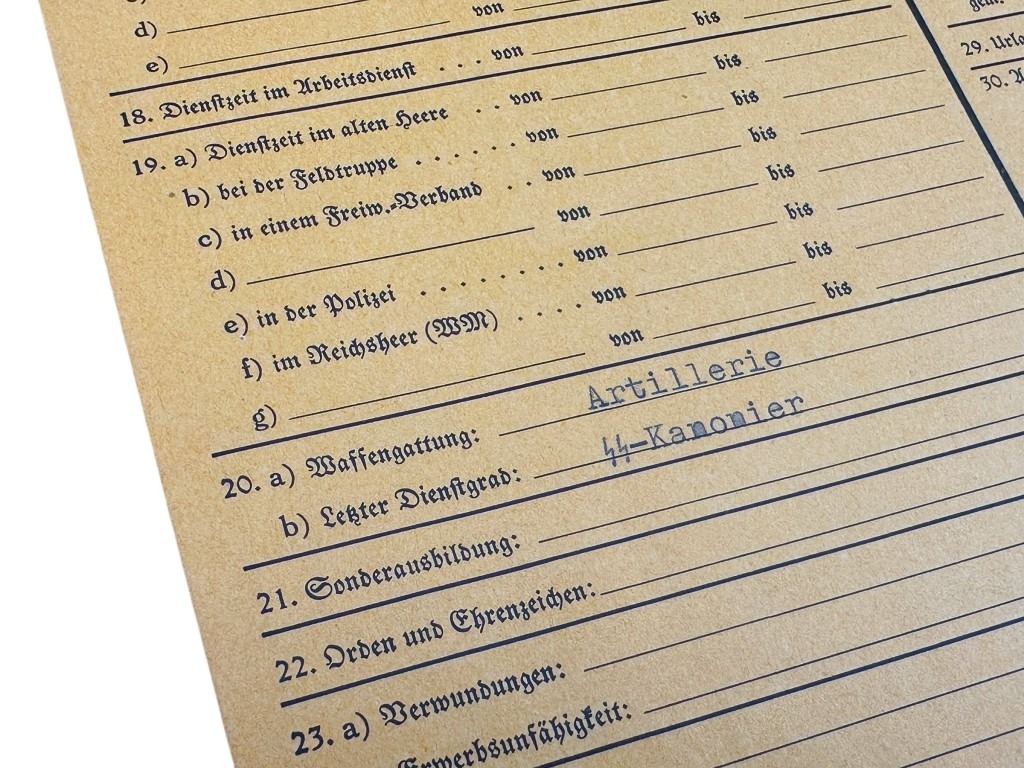 d) von
e) von bis
18. Dienstzeit im Arbeitsdienst . . . von bis
19. a) Dienstzeit im alten Heere . . von bis
b) bei der Feldtruppe . . . . . . von bis
c) in einem Freiw.-Verband . . von bis
d) von bis
e) in der Polizei . . . . . . . von bis
f) im Reichsheer (WM) . . . . von bis
g) von bis
20. a) Waffengattung: Artillerie
b) Letzter Dienstgrad: ϟϟ-Kanonier
21. Sonderausbildung:
22. Orden und Ehrenzeichen:
23. a) Verwundungen:
Erwerbsunfähigkeit:
29.
30.